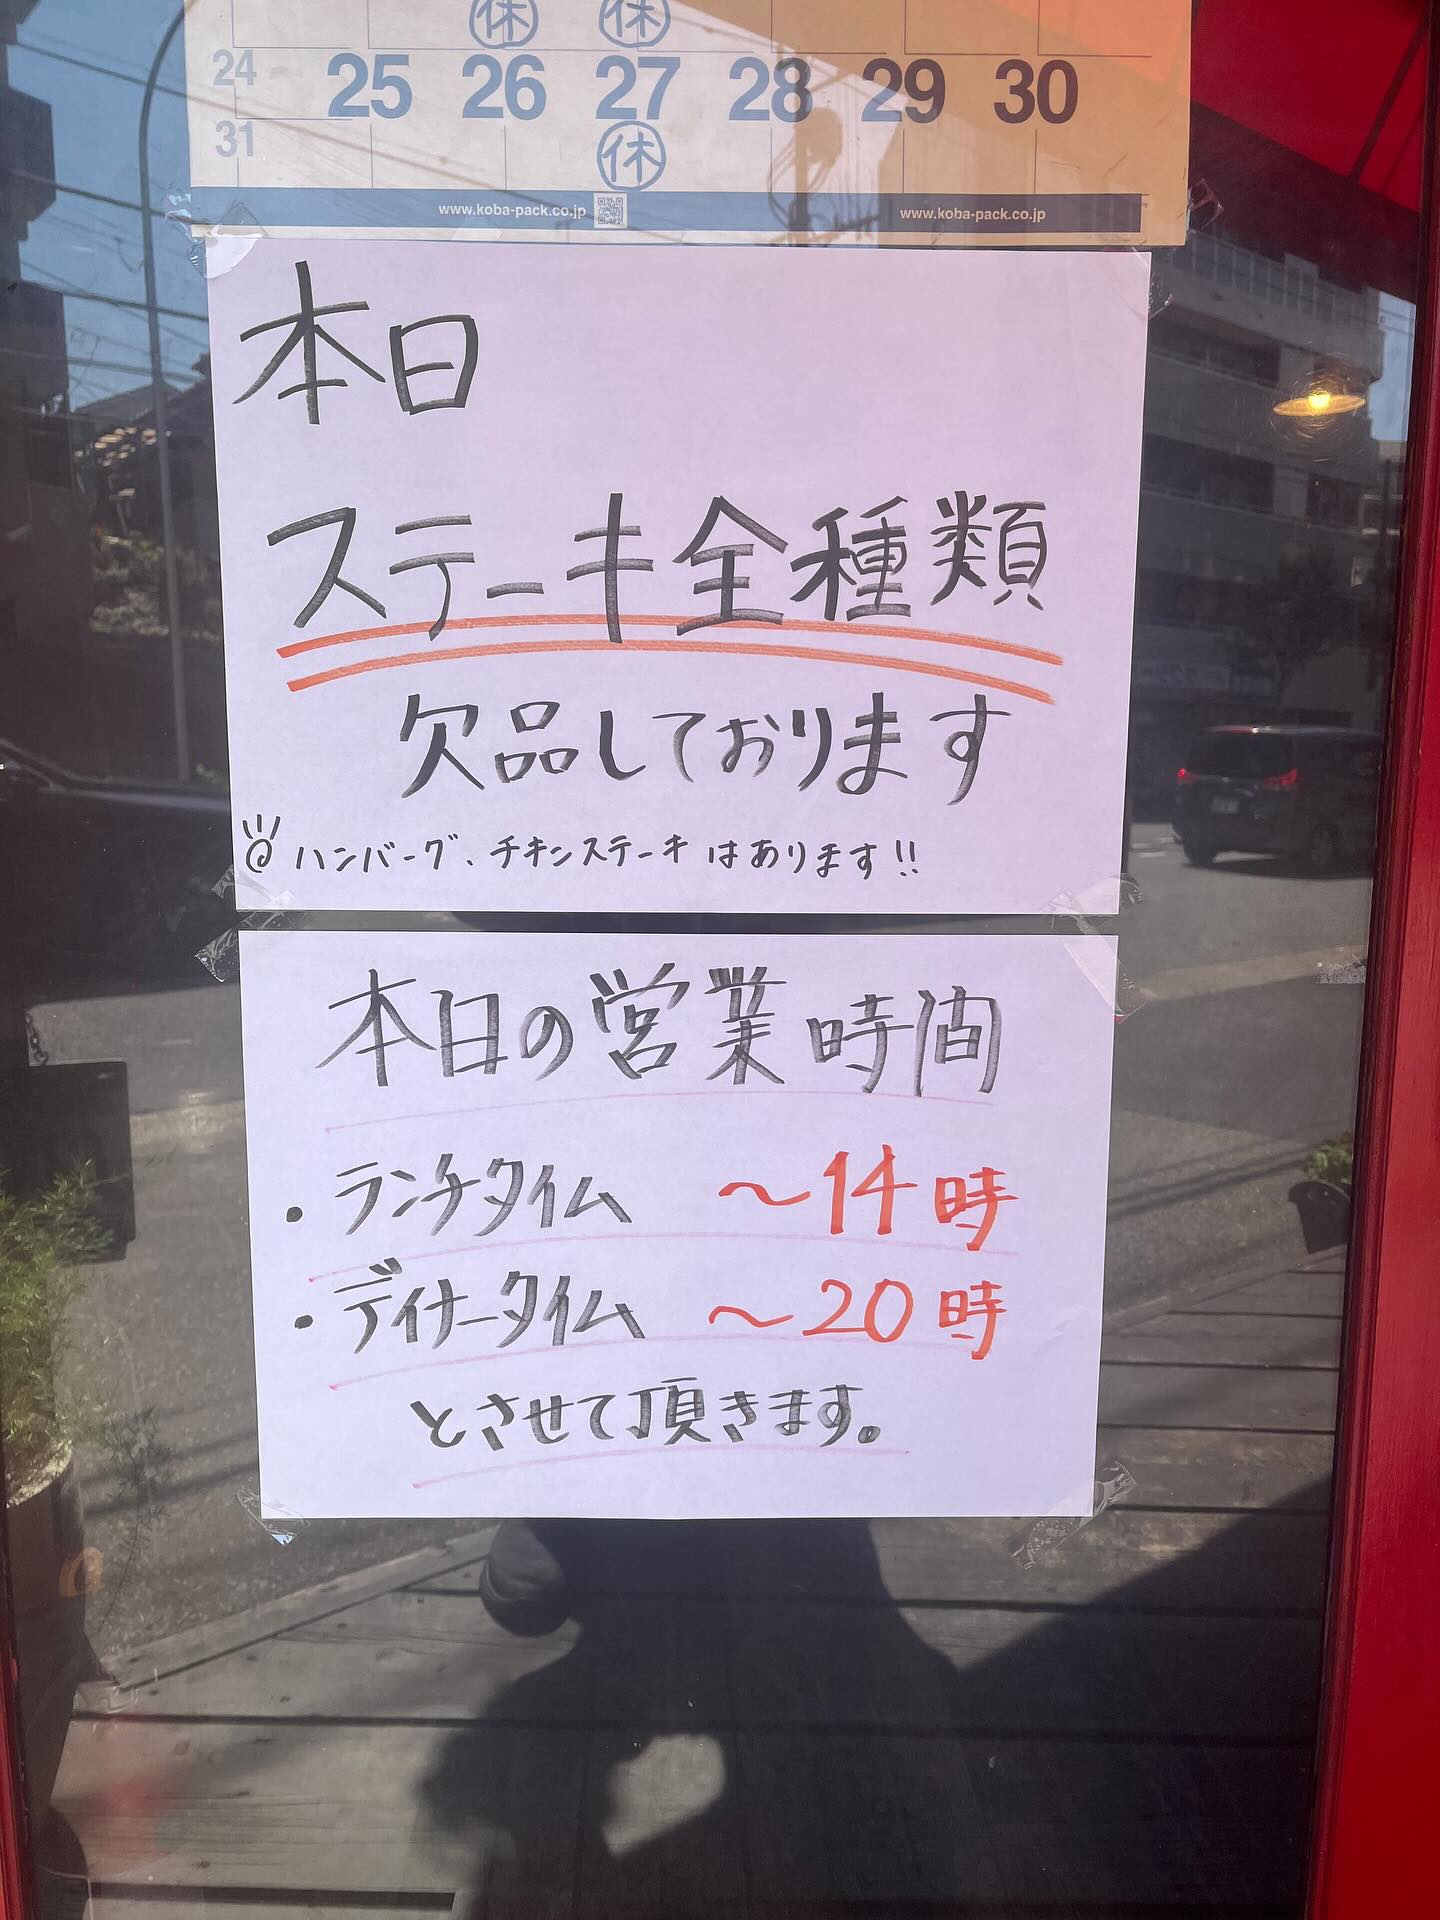 休 休
24 25 26 27 28 29 30
31 休
www.koba-pack.co.jp www.koba-pack.co.jp
本日
ステーキ全種類
欠品しております
ハンバーグ、チキンステーキはあります!!
本日の営業時間
・ランチタイム ～14時
・ディナータイム ～20時
とさせて頂きます。